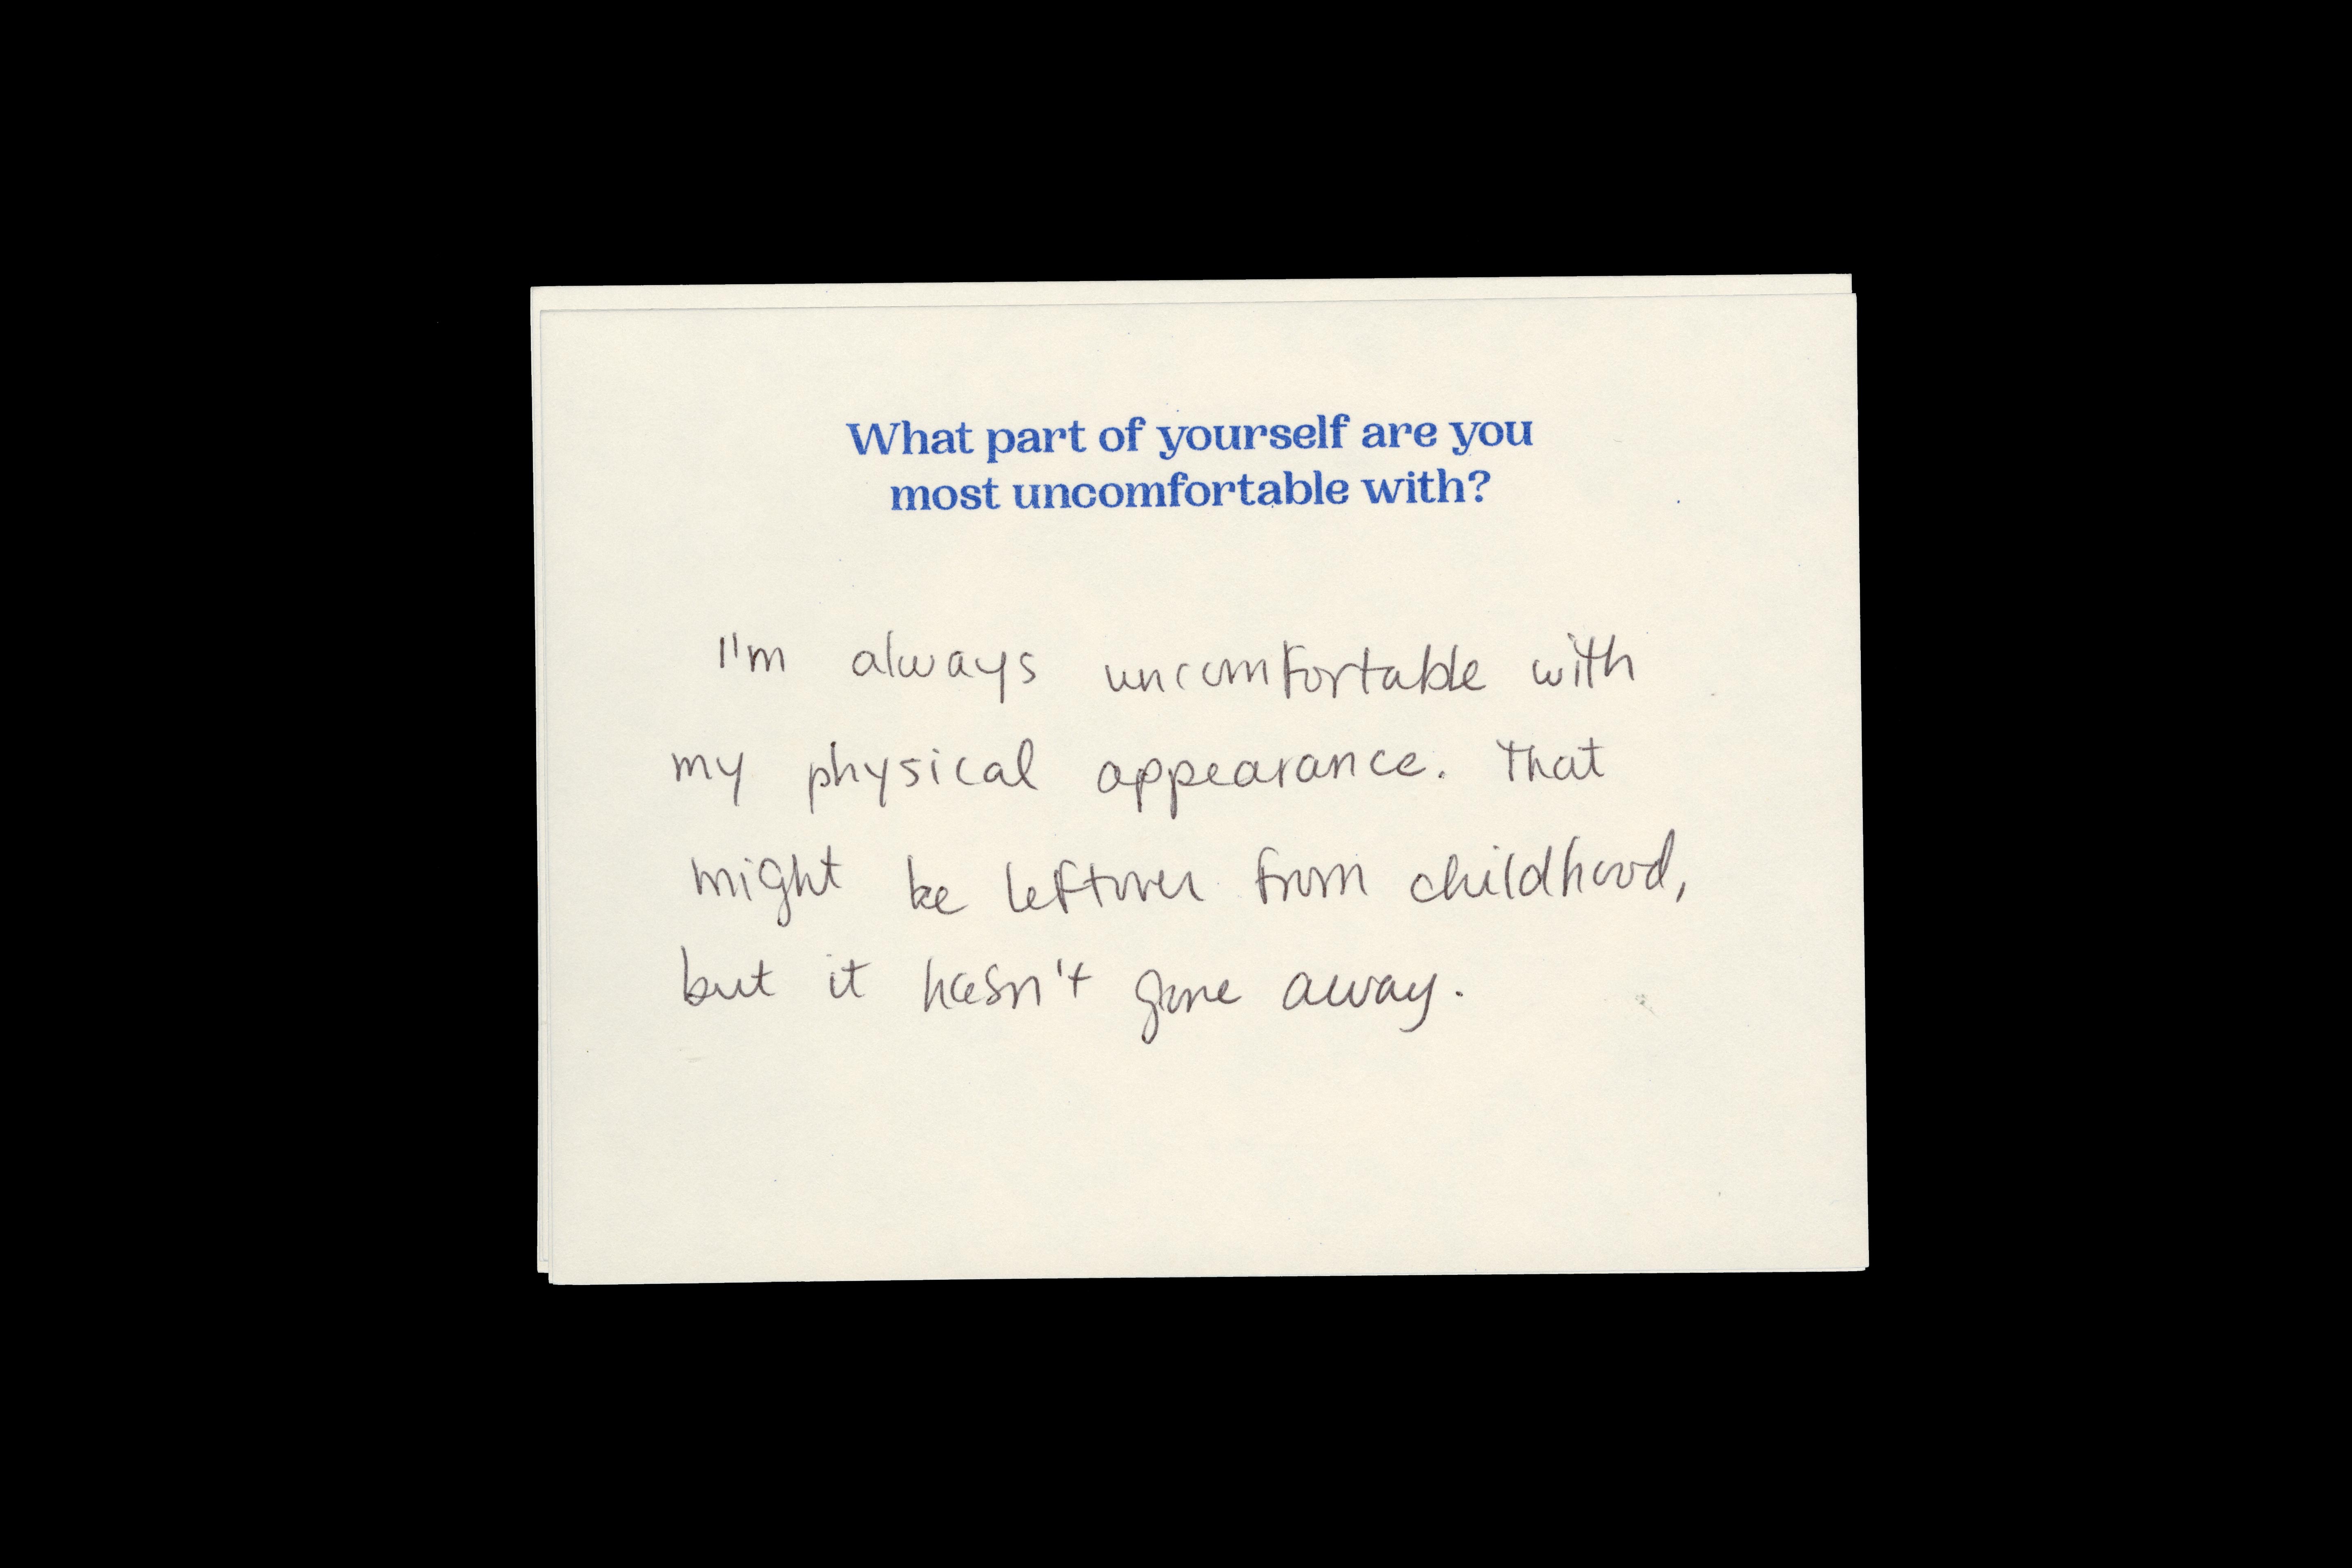 What part of yourself are you
most uncomfortable with?
I'm always uncomfortable with
my physical appearance. That
might be leftover from childhood,
but it hasn't gone away.